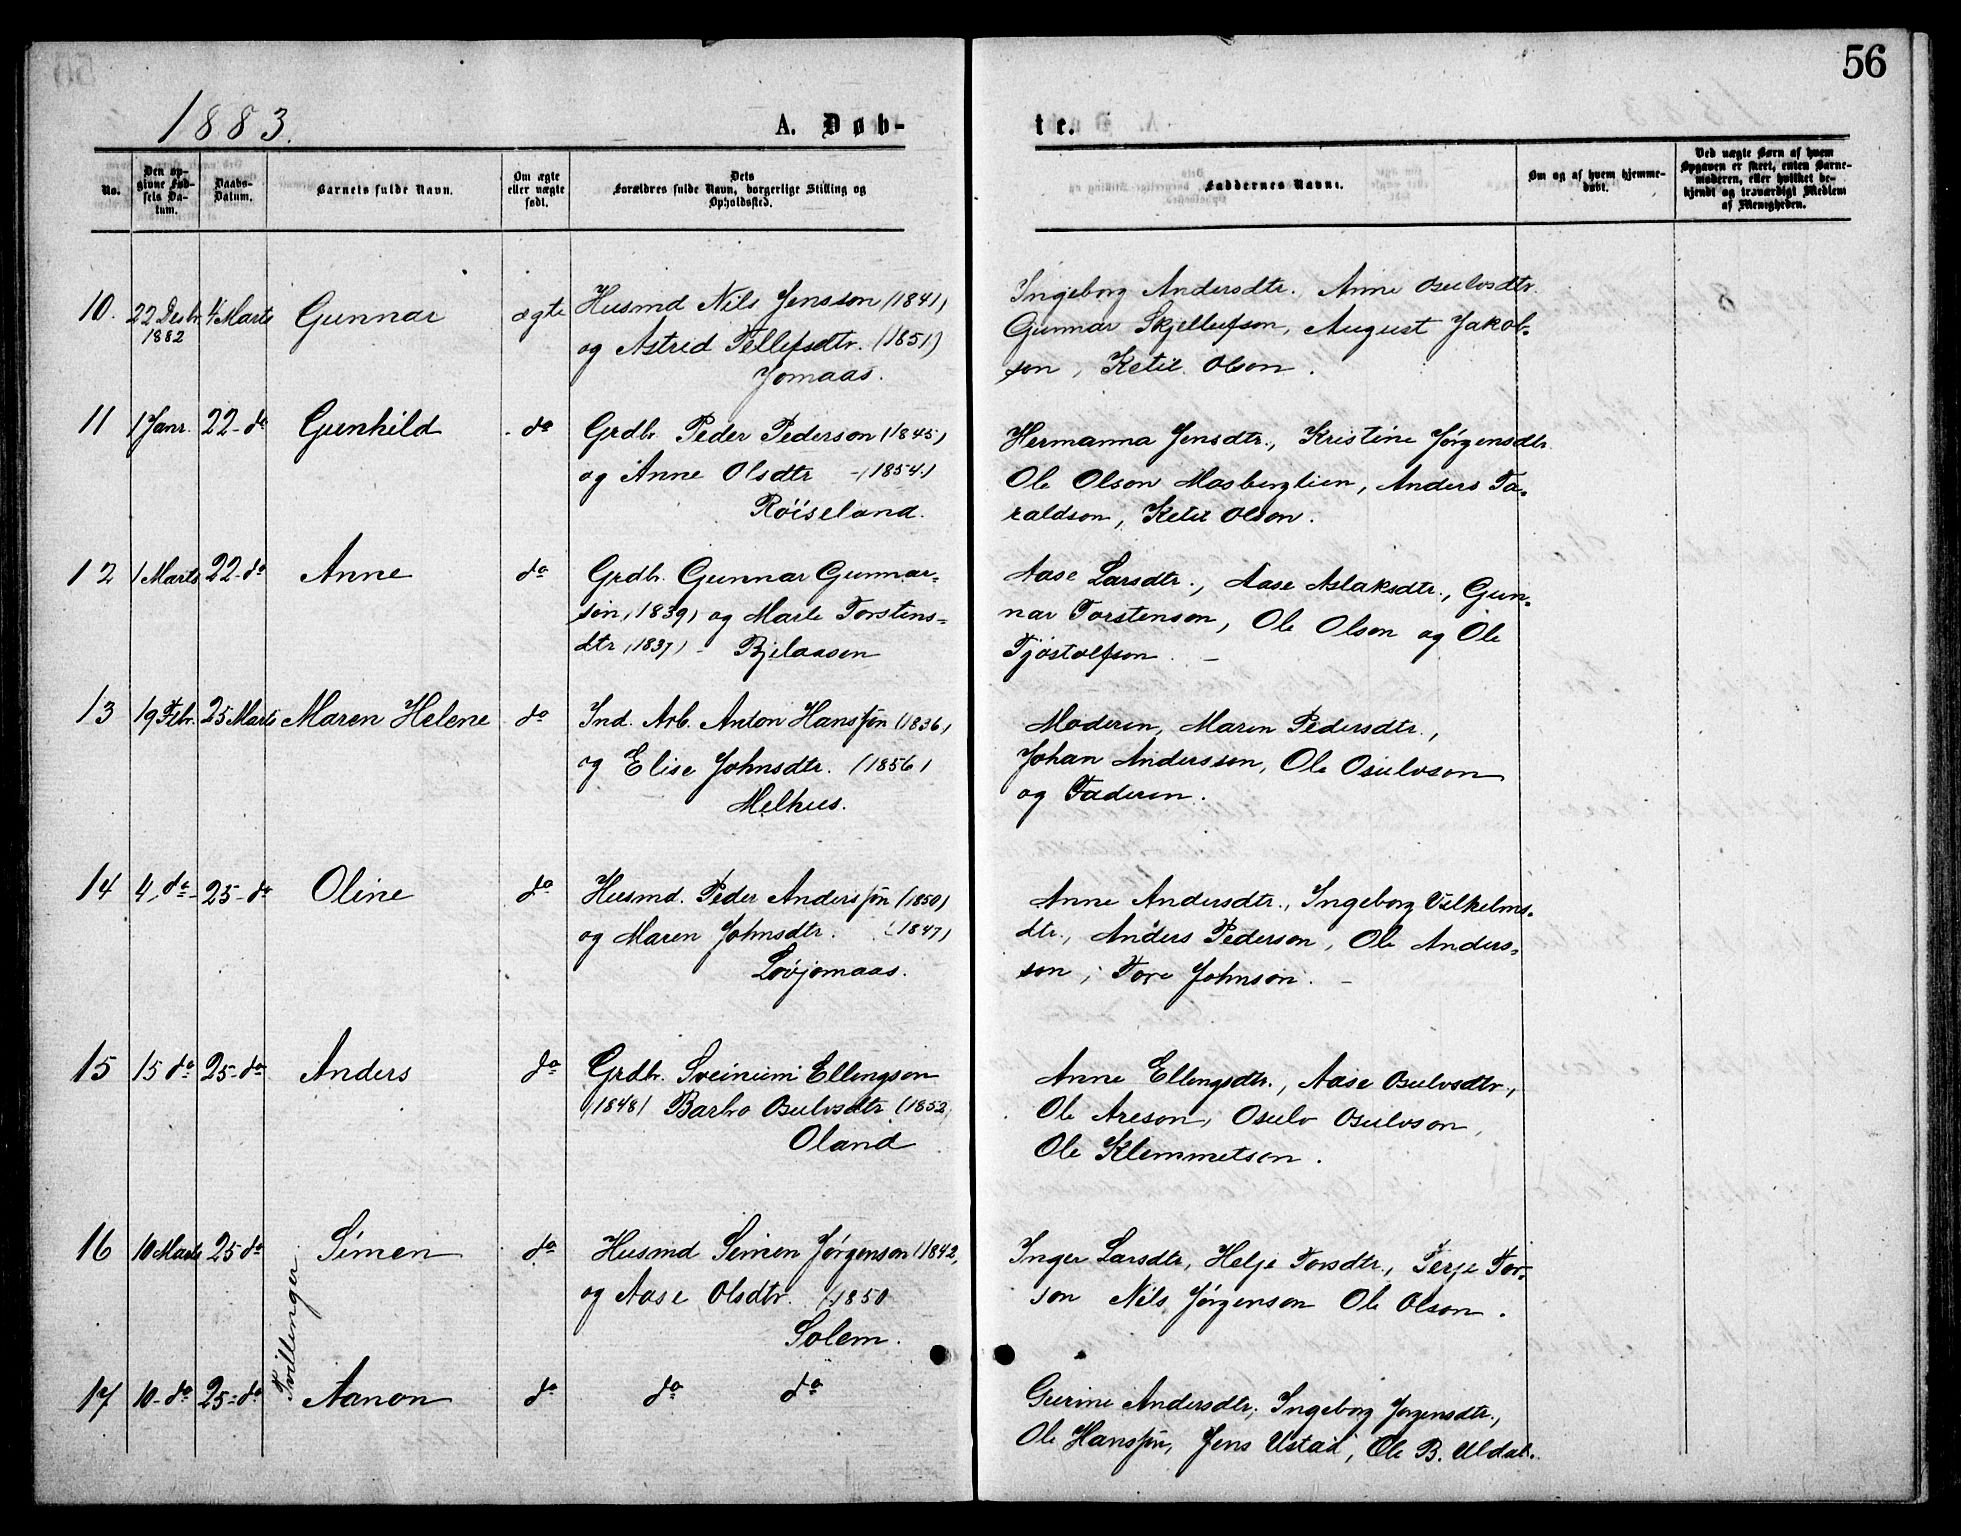 56
1883.
A. Døb-
te.
No.
Den op-
givne Fød-
sels Da-
tum.
Daabs-
Datum.
Barnets fulde Navn.
Om ægte
eller uægte
født.
Dets
Forældres fulde Navn, borgerlige Stilling og
Opholdssted.
Faddernes Navne.
Om og af hvem hjemme-
døbt.
Ved uægte Børn af hvem
Opgaven er skeet, enten Barne-
moderen, eller hvilket be-
kjendt og troværdigt Medlem
af Menigheden.
10. 22 Decbr. 4 Marts Gunnar ægte Husmd Nils Jensson (1841)
1882
og Astrid Tellefsdtr. (1851)
Jomaas.
Ingeborg Andersdtr. Anne Osulvsdtr.
Gunnar Skjellufson, August Jakob-
son, Ketil Olson.
11 1 Janr. 22 - do Gunhild do Grdbr. Peder Pederson (1845)
og Anne Olsdtr - (1854)
Röiseland.
Hermanna Jensdtr., Kristine Jørgensdtr
Ole Olson Mosberglien, Anders Ta-
raldson, Ketil Olson.
12 1 Marts 22 - do Anne do Grdbr. Gunnar Gunnar-
son (1839) og Marte Torstens-
dtr (1837) - Bjelaasen
Aase Larsdtr., Aase Aslaksdtr., Gun-
nar Torstenson, Ole Olson og Ole
Tjöstolfson. -
13 19 Febr. 25 Marts Maren Helene do Ind. Arb. Anton Hansson (1836)
og Elise Johnsdtr. (1856)
Melhus.
Moderen, Maren Pedersdtr.,
Johan Andersson, Ole Osulvson
og Faderen.
14 4. do 25 - do Oline do Husmd. Peder Andersson (1850)
og Maren Johnsdtr. (1847)
Lovjomaas.
Anne Andersdtr., Ingeborg Vilhelms-
dtr., Anders Pederson, Ole Anders-
son, Tore Johnson. -
15 15 do 25 - do Anders do Grdbr. Sveinum Ellingson
(1848) Barbro Osulvsdtr (1852)
Oland
Anne Ellingsdtr., Aase Osulvsdtr.,
Ole Areson, Osulv Osulvson,
Ole Klemmetson.
16 10 Marts 25 do Simen do Husmd Simen Jørgenson (1842,
og Aase Olsdtr. (1850
Solem.
Inger Larsdtr, Helje Torsdtr., Terje Tor-
son Nils Jørgenson Ole Olson.
Tvillinger
17 10 - do 25 - do Aanon do do do
Gurine Andersdtr; Ingeborg Jørgensdtr.,
Ole Hansson, Jens Ustad, Ole B. Uldal.